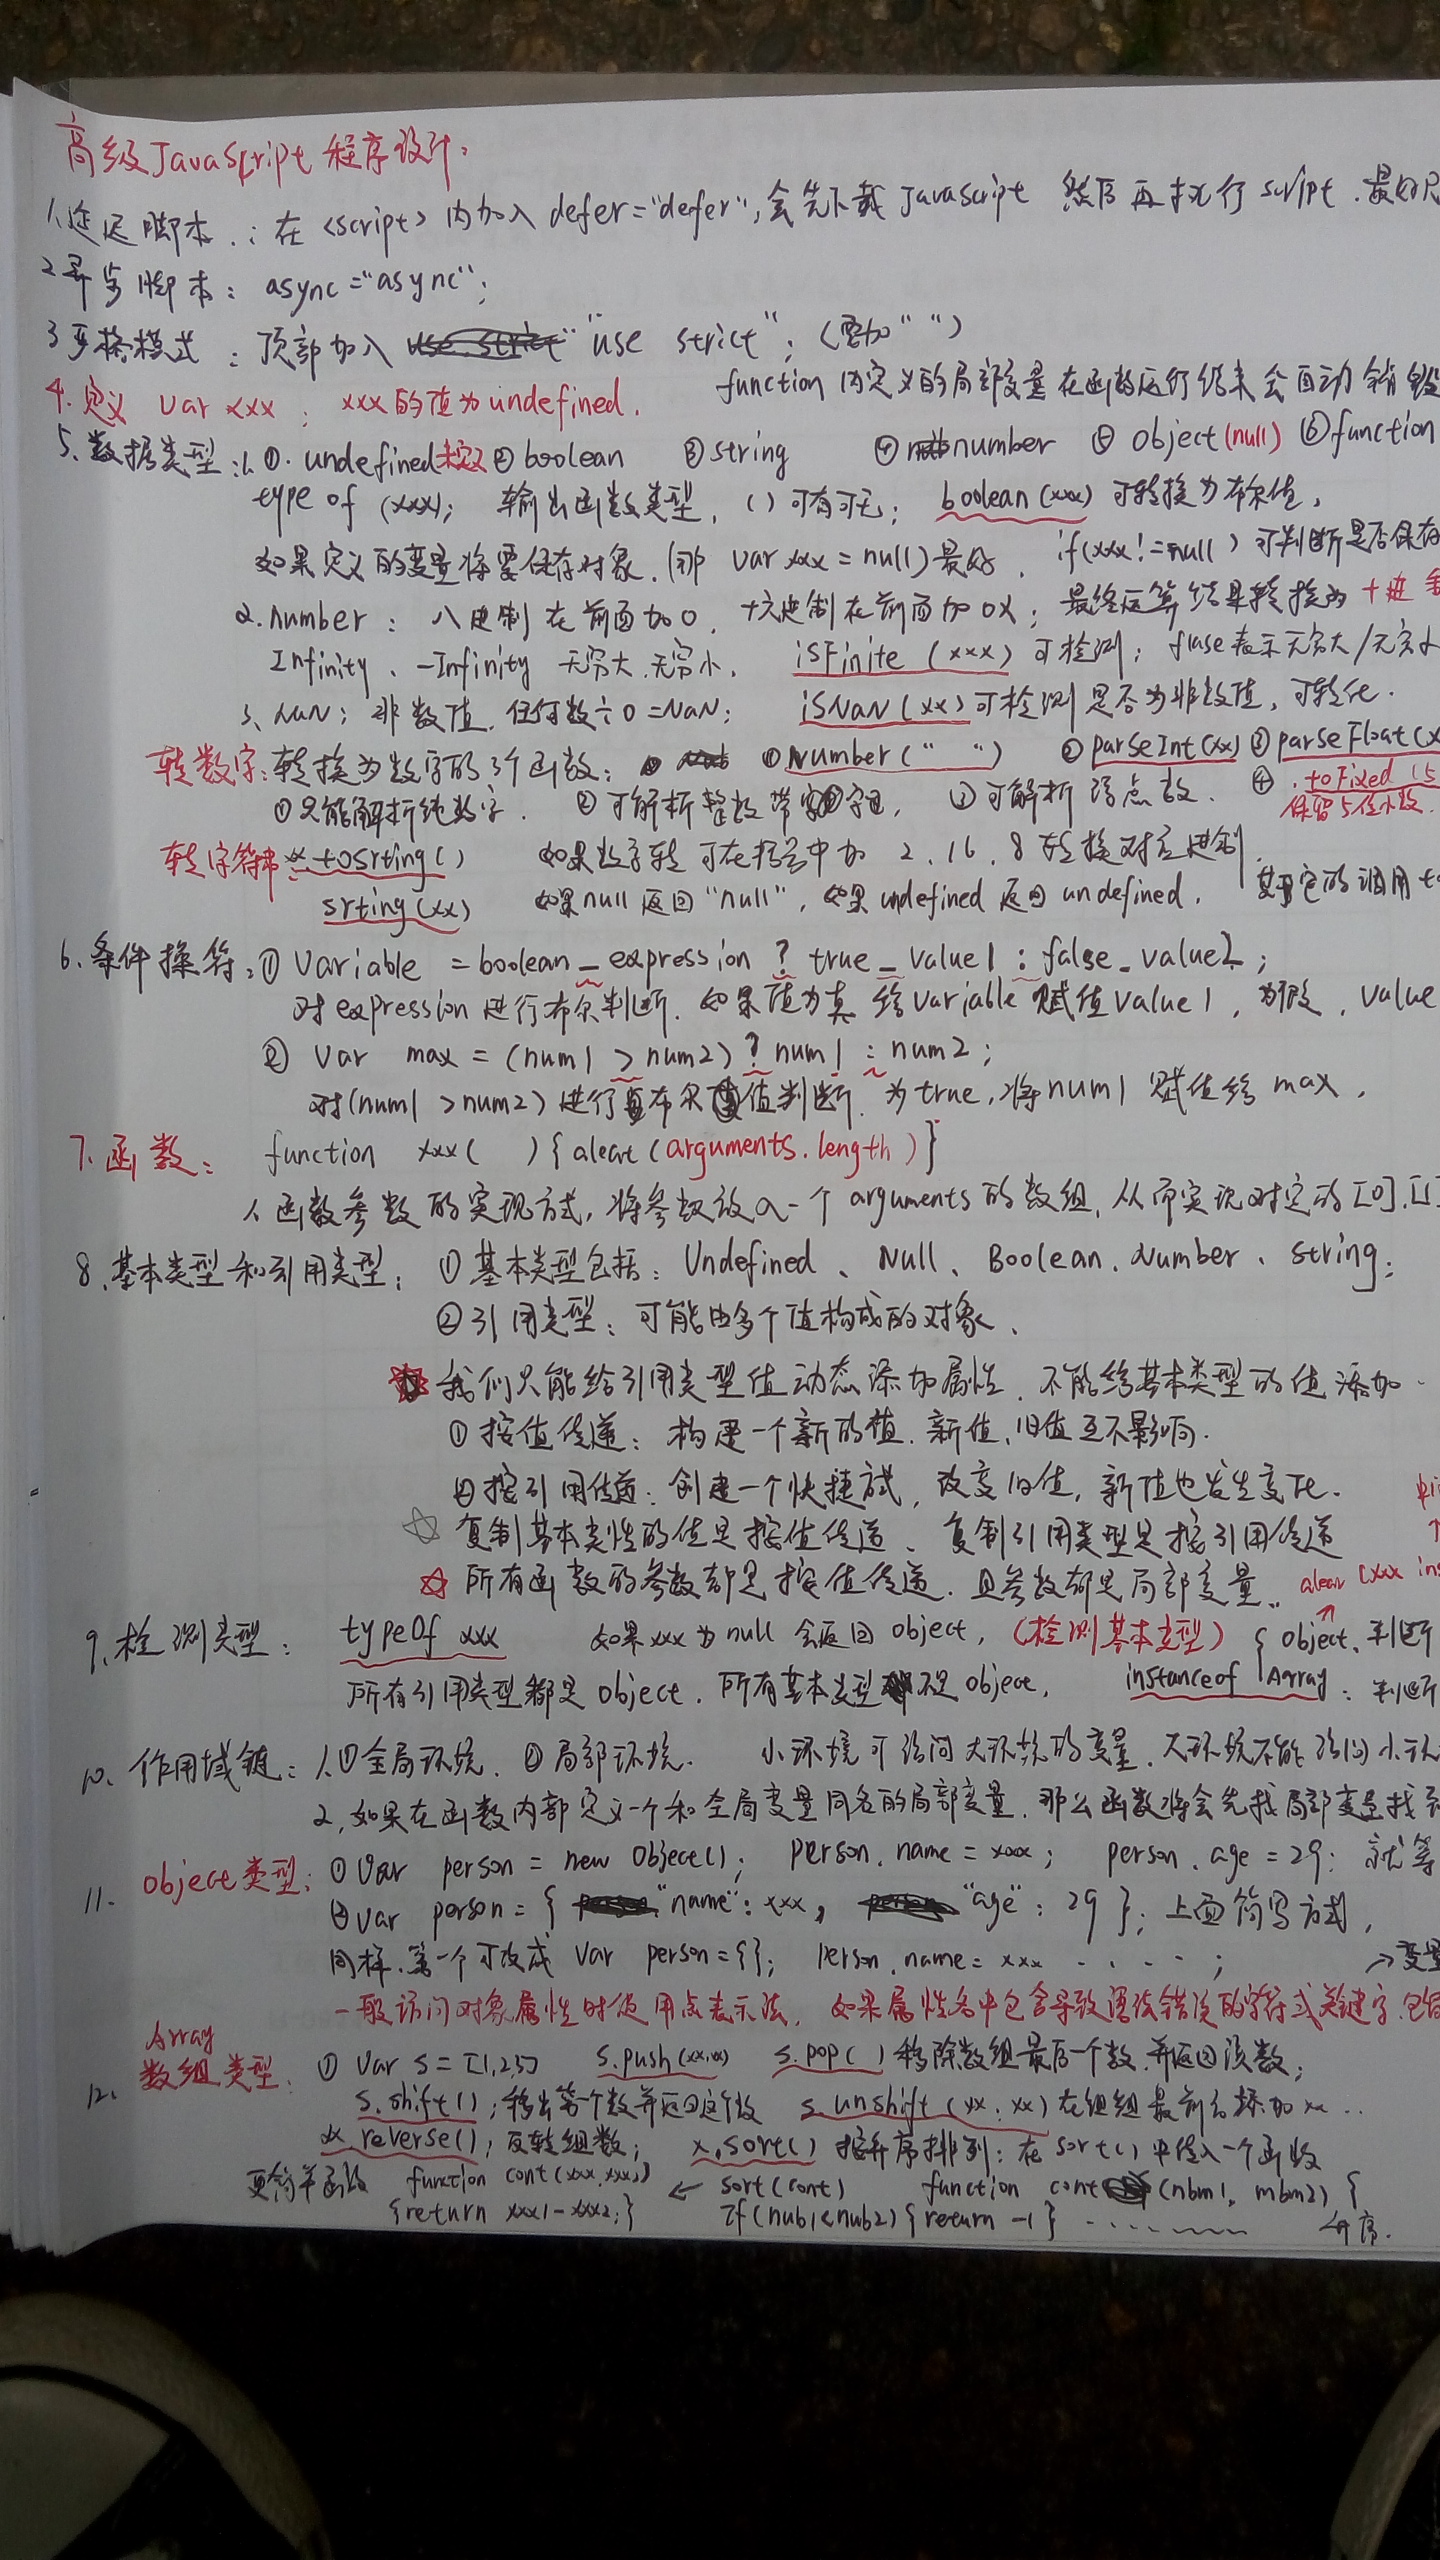 高级JavaScript 程序设计:
1.延迟脚本.: 在 <script> 内加入 defer="defer",会先下载 Javascript 然后再执行 script.最好只
2异步脚本: async="async";
3严格模式 : 顶部加入 "use strict"; (要加" ")
4.定义 var xxx ; xxx的值为undefined.
function 内定义的局部变量在函数运行结束会自动销毁
5.数据类型:1.①.undefined未定义②boolean ③string ④number ⑤object(null) ⑥function
type of (xxx); 输出函数类型, ()可有可无; boolean(xxx)可转换为布尔值,
如果定义的变量将要保存对象.(那 var xxx = null)最好, if(xxx!==null)可判断是否保存
2.number: 八进制在前面加0, 十六进制在前面加0x; 最终运算结果转换为十进
Infinity、-Infinity 无穷大.无穷小, isFinite (xxx) 可检测; flase表示无穷大/无穷小
3、NaN; 非数值,任何数÷0=NaN; isNaN(xx)可检测是否为非数值,可转化.
转数字:转换为数字的3个函数: ①Number(" ") ②parseInt(xx)③parseFloat(x
①只能解析纯数字. ②可解析整数带字母, ③可解析浮点数. ④.toFixed(5
保留5位小数.
转字符串 x.tosrting() 如果数字转可在括号中加 2.16.8转换对应进制
srting(xx) 如果null返回"null",如果undefined返回undefined. 其它的调用to
6.条件操符:① variable = boolean_expression ? true_value1 : false_value2;
对expression进行布尔判断.如果值为真 给variable 赋值value1, 为假, value
② var max = (num1 > num2) ? num1 : num2;
对(num1 >num2)进行布尔值判断.为true,将num1赋值给max,
7.函数: function xxx( ){aleat(arguments.length)}
1.函数参数的实现方式,将参数放入一个arguments的数组,从而实现对应的[0].[1]
8.基本类型和引用类型: ①基本类型包括: Undefined、Null、Boolean.Number、String;
②引用类型:可能由多个值构成的对象、
我们只能给引用类型值动态添加属性.不能给基本类型的值添加.
①按值传递:构建一个新的值.新值,旧值互不影响.
②按引用传递:创建一个快捷方式,改变旧值,新值也发生变化.
☆ 复制基本类性的值是按值传递、复制引用类型是按引用传递
☆ 所有函数的参数都是按值传递.且参数都是局部变量.. alear (xxx ins
9.检测类型: typeOf xxx 如果xxx为null会返回object,(检测基本类型) {Object、判断
所有引用类型都是object.所有基本类型不是object, instanceof Array: 判断
10、作用域链:1.①全局环境.②局部环境. 小环境可访问大环境的变量.大环境不能访问小环
2,如果在函数内部定义一个和全局变量同名的局部变量.那么函数将会先找局部变量找到
11. object类型:①Var person = new Object(); person.name = xxx; person.age = 29; 就等
②var person = { "name": xxx, "age": 29 }; 上面简写方式,
同样.第一个可改成 var person={}; person.name= xxx ....; →变量
一般访问对象属性时使用点表示法, 如果属性名中包含导致语法错误的字符或关键字.包含
Array
12. 数组类型: ① var s=[1,2,3] s.push(xx,xx) s.pop()移除数组最后一个数.并返回该数;
s.shift();移出第一个数并返回这个数 s.unshift(xx.xx)在组组最前台添加xx..
x.reverse();反转组数; x.sort() 按升序排列:在sort()中传入一个函数
更简单函数 function cont(xxx,xxx) ← sort(cont) function cont (nbm1, mbm2) {
{return xxx1-xxx2;} If(nub1<nub2){return -1} ........ 升序.